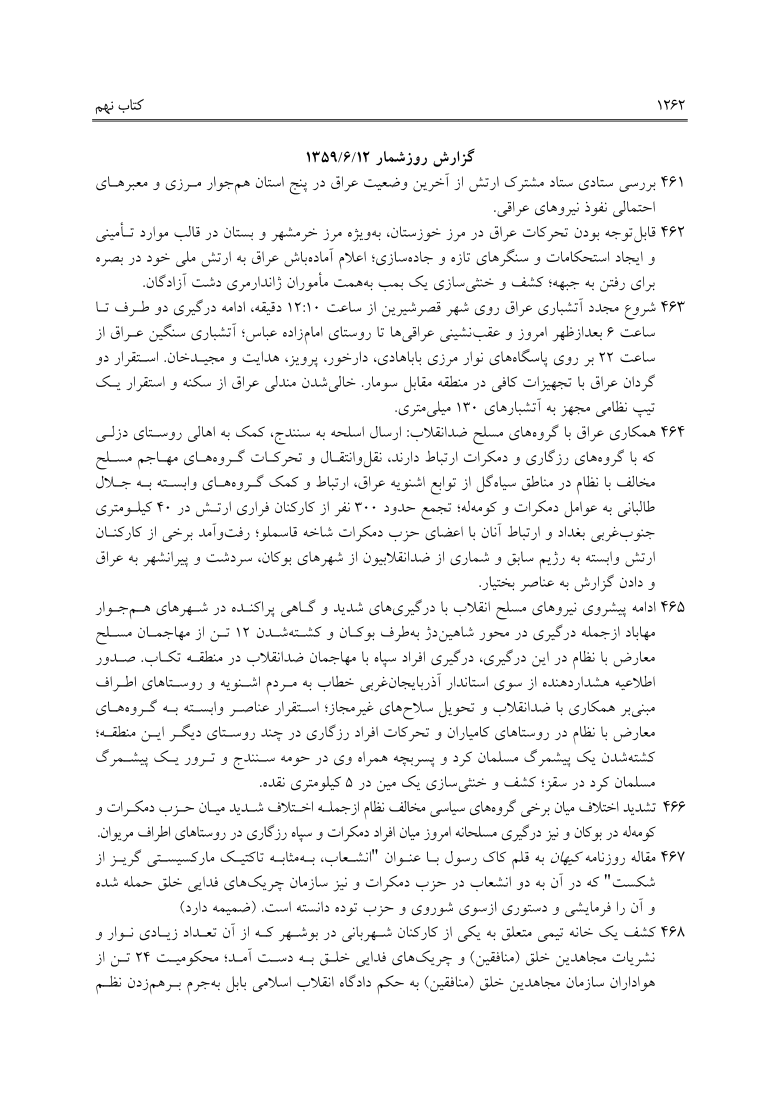 ۱۲۶۲ کتاب نهم
گزارش روزشمار ۱۳۵۹/۶/۱۲
۴۶۱ بررسی ستادی ستاد مشترک ارتش از آخرین وضعیت عراق در پنج استان هم‌جوار مرزی و معبرهای
احتمالی نفوذ نیروهای عراقی.
۴۶۲ قابل‌توجه بودن تحرکات عراق در مرز خوزستان، به‌ویژه مرز خرمشهر و بستان در قالب موارد تأمینی
و ایجاد استحکامات و سنگرهای تازه و جاده‌سازی؛ اعلام آماده‌باش عراق به ارتش ملی خود در بصره
برای رفتن به جبهه؛ کشف و خنثی‌سازی یک بمب به‌همت مأموران ژاندارمری دشت آزادگان.
۴۶۳ شروع مجدد آتشباری عراق روی شهر قصرشیرین از ساعت ۱۲:۱۰ دقیقه، ادامه درگیری دو طرف تا
ساعت ۶ بعدازظهر امروز و عقب‌نشینی عراقی‌ها تا روستای امامزاده عباس؛ آتشباری سنگین عراق از
ساعت ۲۲ بر روی پاسگاه‌های نوار مرزی باباهادی، دارخور، پرویز، هدایت و مجیدخان. استقرار دو
گردان عراق با تجهیزات کافی در منطقه مقابل سومار. خالی‌شدن مندلی عراق از سکنه و استقرار یک
تیپ نظامی مجهز به آتشبارهای ۱۳۰ میلی‌متری.
۴۶۴ همکاری عراق با گروه‌های مسلح ضدانقلاب: ارسال اسلحه به سنندج، کمک به اهالی روستای دزلی
که با گروه‌های رزگاری و دمکرات ارتباط دارند، نقل‌وانتقال و تحرکات گروه‌های مهاجم مسلح
مخالف با نظام در مناطق سیاه‌گل از توابع اشنویه عراق، ارتباط و کمک گروه‌های وابسته به جلال
طالبانی به عوامل دمکرات و کومه‌له؛ تجمع حدود ۳۰۰ نفر از کارکنان فراری ارتش در ۴۰ کیلومتری
جنوب‌غربی بغداد و ارتباط آنان با اعضای حزب دمکرات شاخه قاسملو؛ رفت‌وآمد برخی از کارکنان
ارتش وابسته به رژیم سابق و شماری از ضدانقلابیون از شهرهای بوکان، سردشت و پیرانشهر به عراق
و دادن گزارش به عناصر بختیار.
۴۶۵ ادامه پیشروی نیروهای مسلح انقلاب با درگیری‌های شدید و گاهی پراکنده در شهرهای هم‌جوار
مهاباد ازجمله درگیری در محور شاهین‌دژ به‌طرف بوکان و کشته‌شدن ۱۲ تن از مهاجمان مسلح
معارض با نظام در این درگیری، درگیری افراد سپاه با مهاجمان ضدانقلاب در منطقه تکاب. صدور
اطلاعیه هشداردهنده از سوی استاندار آذربایجان‌غربی خطاب به مردم اشنویه و روستاهای اطراف
مبنی‌بر همکاری با ضدانقلاب و تحویل سلاح‌های غیرمجاز؛ استقرار عناصر وابسته به گروه‌های
معارض با نظام در روستاهای کامیاران و تحرکات افراد رزگاری در چند روستای دیگر این منطقه؛
کشته‌شدن یک پیشمرگ مسلمان کرد و پسربچه همراه وی در حومه سنندج و ترور یک پیشمرگ
مسلمان کرد در سقز؛ کشف و خنثی‌سازی یک مین در ۵ کیلومتری نقده.
۴۶۶ تشدید اختلاف میان برخی گروه‌های سیاسی مخالف نظام ازجمله اختلاف شدید میان حزب دمکرات و
کومه‌له در بوکان و نیز درگیری مسلحانه امروز میان افراد دمکرات و سپاه رزگاری در روستاهای اطراف مریوان.
۴۶۷ مقاله روزنامه کیهان به قلم کاک رسول با عنوان "انشعاب، به‌مثابه تاکتیک مارکسیستی گریز از
شکست" که در آن به دو انشعاب در حزب دمکرات و نیز سازمان چریک‌های فدایی خلق حمله شده
و آن را فرمایشی و دستوری ازسوی شوروی و حزب توده دانسته است. (ضمیمه دارد)
۴۶۸ کشف یک خانه تیمی متعلق به یکی از کارکنان شهربانی در بوشهر که از آن تعداد زیادی نوار و
نشریات مجاهدین خلق (منافقین) و چریک‌های فدایی خلق به دست آمد؛ محکومیت ۲۴ تن از
هواداران سازمان مجاهدین خلق (منافقین) به حکم دادگاه انقلاب اسلامی بابل به‌جرم برهم‌زدن نظم